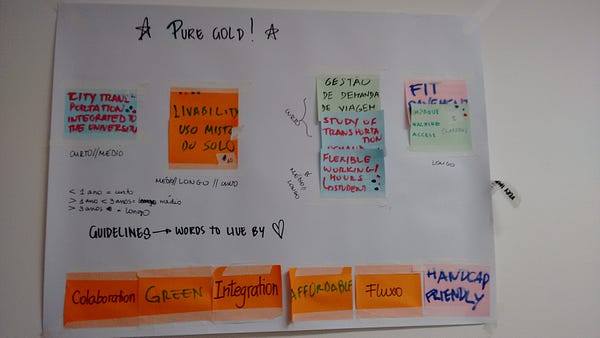 ☆ PURE GOLD! ☆
CITY TRANS-
PORTATION
INTEGRATED TO
THE UNIVERSITY
CURTO//MEDIO
LIVABILITY
USO MISTO
DO SOLO
MEDIO//LONGO//CURTO
GESTÃO
DE DEMANDA
DE VIAGEM
CURTO
STUDY OF
TRANSPORTA
TION
FLEXIBLE
WORKING/
HOURS
STUDENT
MEDIO//
LONGO
FIT
ACCESS
LONGO
< 1 ano = curto
> 1 ano < 3 anos = médio
> 3 anos = LONGO
GUIDELINES → WORDS TO LIVE BY ♡
Colaboration
GREEN
Integration
AFFORDABLE
Fluxo
HANDICAP
FRIENDLY